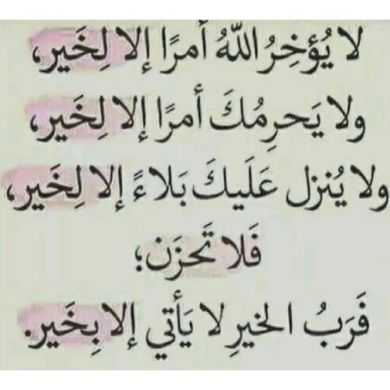 لا يُؤخِرُ اللّٰهُ أمرًا إلا لِخَير،
ولا يَحرِمُكَ أمرًا إلا لِخَير،
ولا يُنزل عَليكَ بَلاءً إلا لِخَير،
فَلا تَحزَن؛
فَرَبُ الخيرِ لا يَأتي إلا بِخَير.